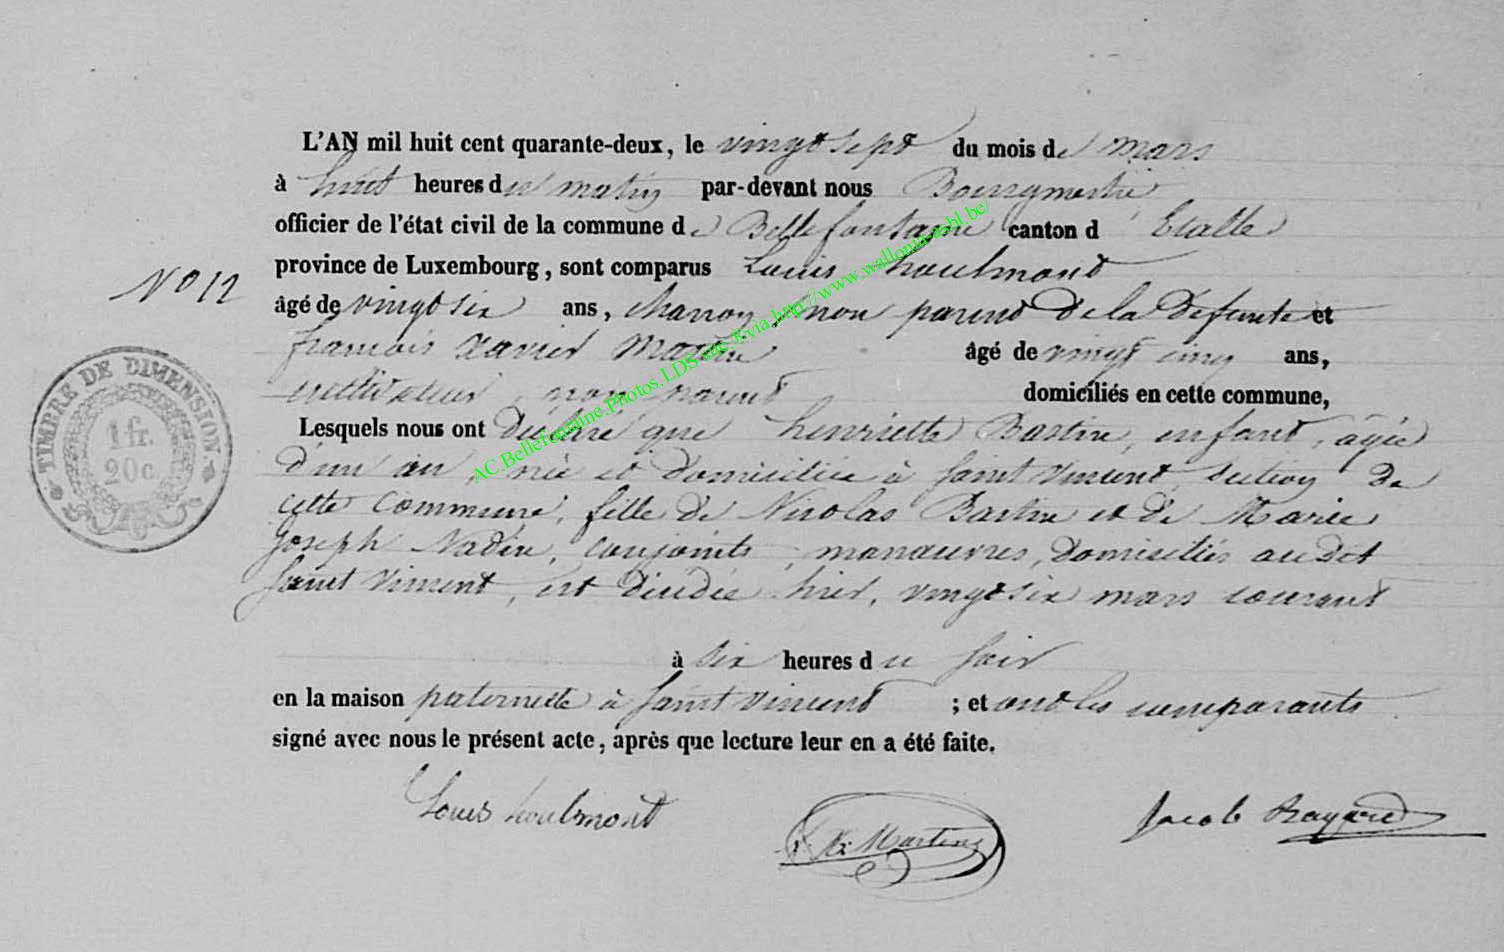 L'AN mil huit cent quarante-deux, le vingt sept du mois de mars
à huit heures du matin par-devant nous Bourgmestre
officier de l'état civil de la commune de Bellefontaine canton d Etalle
province de Luxembourg, sont comparus Louis houlmont
N° 12
âgé de vingt six ans, charron, non parent de la défunte et
francois Xavier Martin âgé de vingt cinq ans,
instituteur, non parent domiciliés en cette commune,
Lesquels nous ont déclaré que henriette Bastin, enfant, agée
d'un an, née et domiciliée à Saint Vincent, section de
cette commune, fille de Nicolas Bastin et de Marie
Joseph Nadin, conjoints, manœuvres, domiciliés au dit
Saint Vincent, est décédée hier, vingt six mars courant
à six heures du soir
en la maison paternelle à Saint Vincent ; et ont les comparants
signé avec nous le présent acte, après que lecture leur en a été faite.
Louis houlmont
Martin
Jacob
TIMBRE DE DIMENSION
1 fr.
20 c.
AC.Bellefontaine.Photos.LDS via http://www.wallonia-asbl.be/